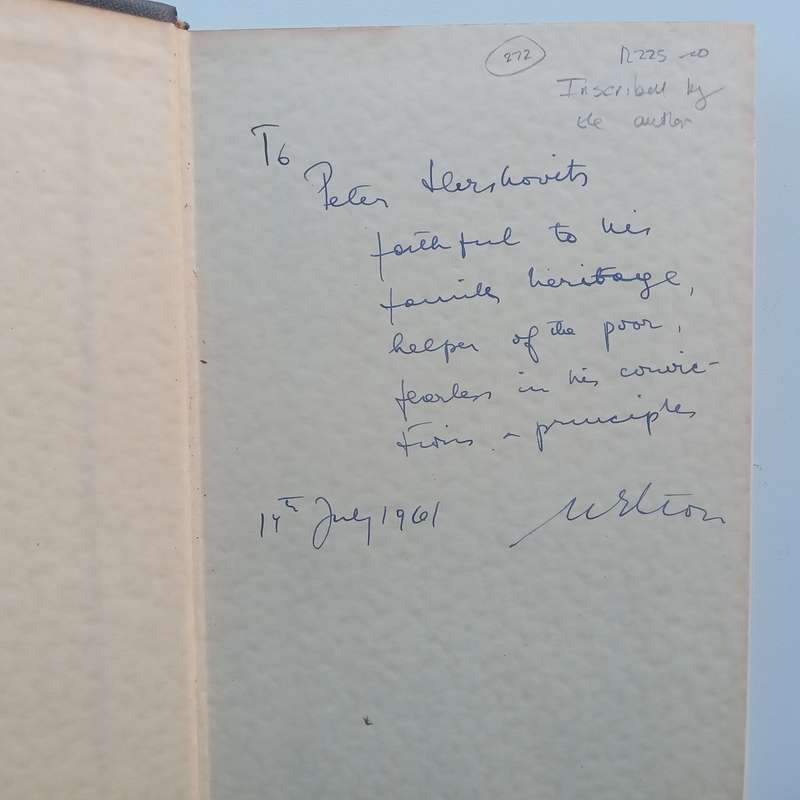 272
R225-00
Inscribed by
the author
To
Peter Hershovits
faithful to his
family heritage,
helper of the poor,
fearless in his convic-
tions - principles
July 1961